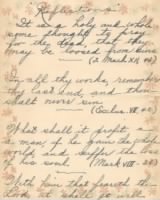 Reflections
It is a holy and whole
some thought to pray
for the dead, that they
may be loosed from sins
(2 Mach XII, 46)
In all thy works, remember
thy last end, and thou
shalt never sin
(Ecclus. VII, 40)
What shall it profit a
man, if he gain the whole
world, and suffer the loss
of his soul. (Mark VIII-36)
With him that feareth the
Lord, it shall go well